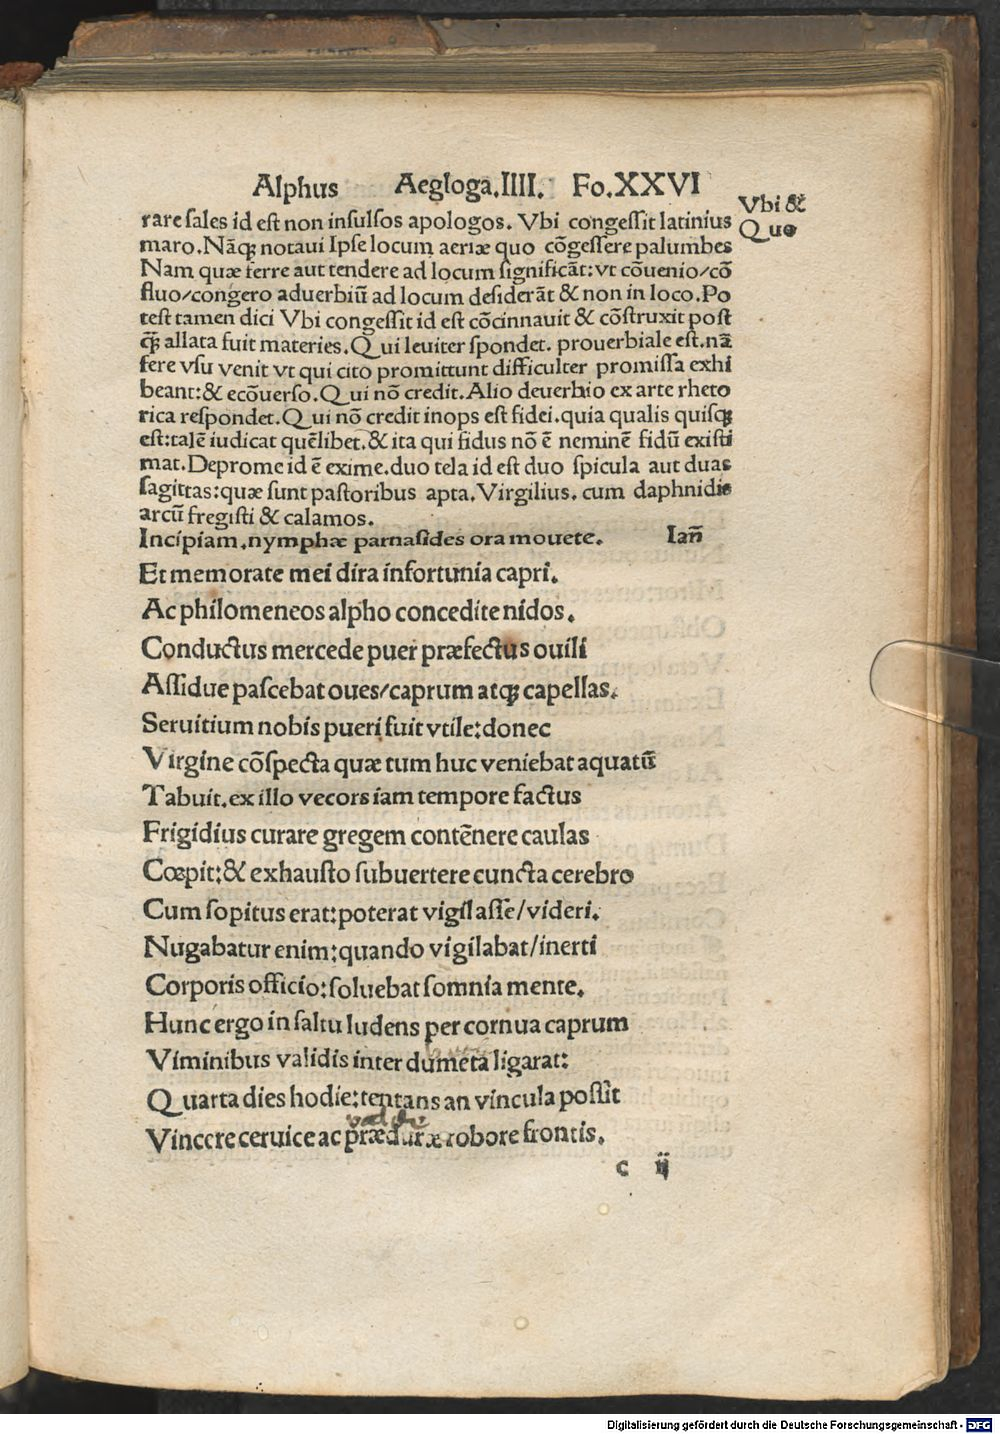 Alphus Aegloga.IIII. Fo.XXVI
rare sales id est non insulsos apologos. Vbi congessit latinius
Vbi &
Quo
maro. Nãq; notaui Ipse locum aeriæ quo cõgessere palumbes
Nam quæ ferre aut tendere ad locum significãt: vt cõuenio/cõ
fluo/congero aduerbiũ ad locum desiderãt & non in loco. Po
test tamen dici Vbi congessit id est cõcinnauit & cõstruxit post
q̃ allata fuit materies. Qui leuiter spondet. prouerbiale est. nã
fere vsu venit vt qui cito promittunt difficulter promissa exhi
beant: & ecõuerso. Qui nõ credit. Alio deuerbio ex arte rheto
rica respondet. Qui nõ credit inops est fidei. quia qualis quisq;
est: talẽ iudicat quẽlibet. & ita qui fidus nõ ẽ neminẽ fidũ existi
mat. Deprome id ẽ exime. duo tela id est duo spicula aut duas
sagittas: quæ sunt pastoribus apta. Virgilius. cum daphnidis
arcũ fregisti & calamos.
Incipiam. nymphæ parnasides ora mouete. Iañ
Et memorate mei dira infortunia capri.
Ac philomeneos alpho concedite nidos.
Conductus mercede puer præfectus ouili
Assidue pascebat oues/caprum atq; capellas.
Seruitium nobis pueri fuit vtile: donec
Virgine cõspecta quæ tum huc veniebat aquatũ
Tabuit. ex illo vecors iam tempore factus
Frigidius curare gregem contẽnere caulas
Cœpit: & exhausto subuertere cuncta cerebro
Cum sopitus erat: poterat vigilasse/videri.
Nugabatur enim: quando vigilabat/inerti
Corporis officio: soluebat somnia mente.
Hunc ergo in saltu ludens per cornua caprum
Viminibus validis inter dumeta ligarat:
Quarta dies hodie: tentans an vincula possit
valde
Vincere ceruice ac prædu­ræ robore frontis.
c ij
Digitalisierung gefördert durch die Deutsche Forschungsgemeinschaft - DFG